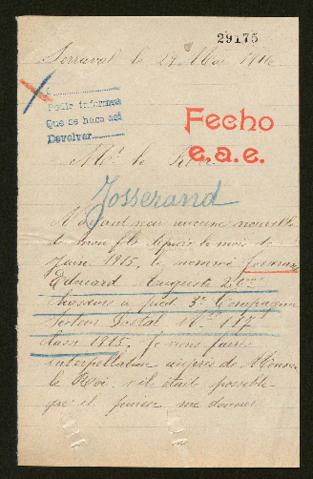 29175
Serraval le 27 Mai 1916
Pedir informes
Que se hace así
Devolver
Fecho
e.a.e.
Mr. le Roi
Josserand
N'ayant eu aucune nouvelle
de mon fils depuis le mois de
Juin 1915, le nommé Josserand
Edouard Auguste
chasseurs à pied 3e Compagnie
Secteur Postal No 117
1915. Je vous fais
interpellation auprès de Monsieur
le Roi s'il était possible
qu'il me donner